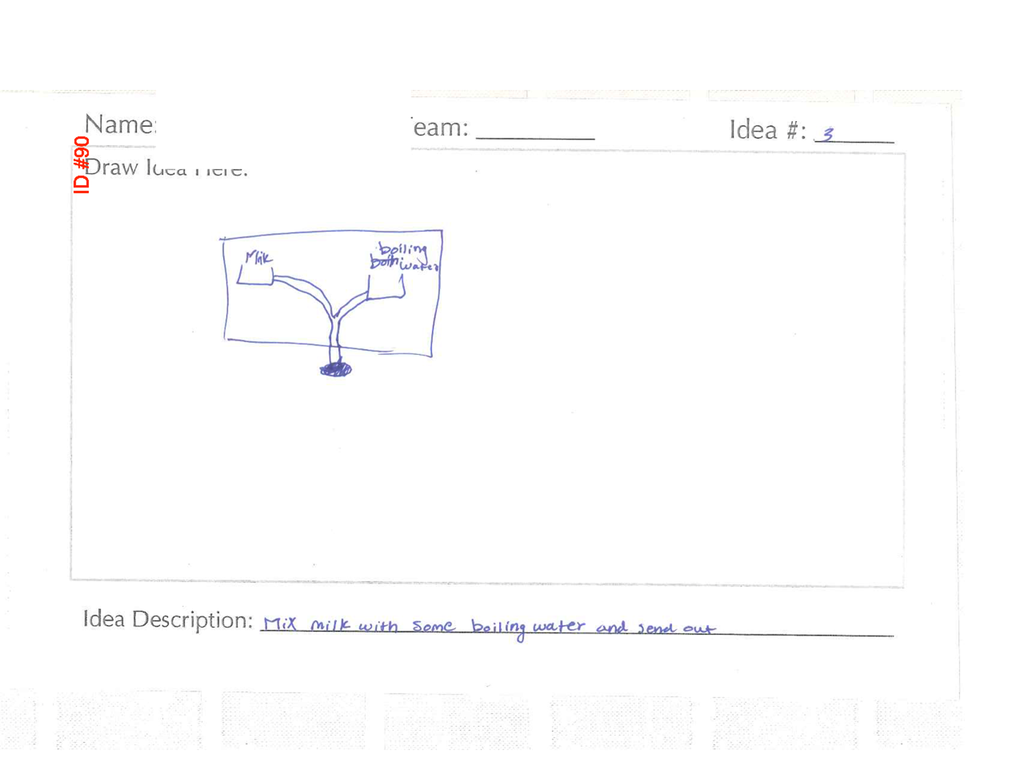 Name: Team: Idea #: 3
ID #90
Draw Idea Here:
Milk boiling
water
Idea Description: Mix milk with some boiling water and send out